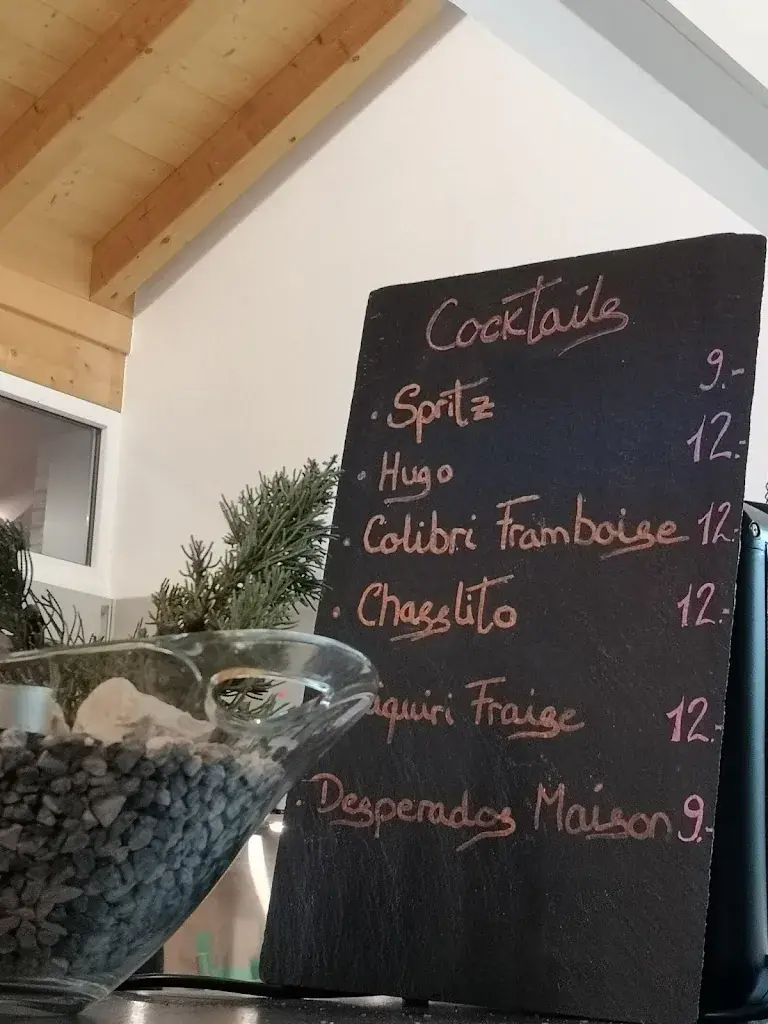 Cocktails
• Spritz 9.-
• Hugo 12.-
• Colibri Framboise 12.-
• Chasslito 12.-
aiquiri Fraise 12.-
• Desperados Maison 9.-